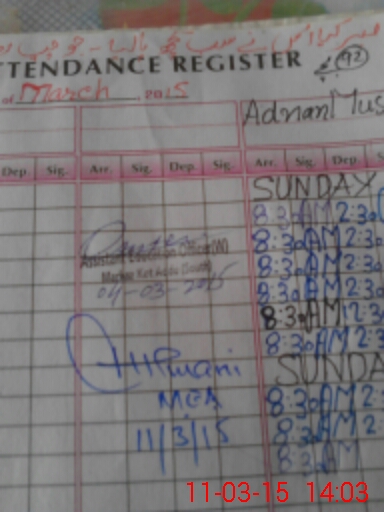 ATTENDANCE REGISTER 92
of March 2015
Adnan Mus
Dep. Sig. Arr. Sig. Dep. Sig. Arr. Sig. Dep.
SUNDAY
8:30AM 2:30
8:30AM 2:30
8:30AM 2:30
8:30AM 2:30
8:30AM 12:3
8:30AM 2:3
SUNDA
8:30AM 2:3
8:30AM 2:3
8:30AM
Assistant Education Officer (W)
Markaz Kot Addu (South)
04-03-2015
MEA
11/3/15
11-03-15 14:03